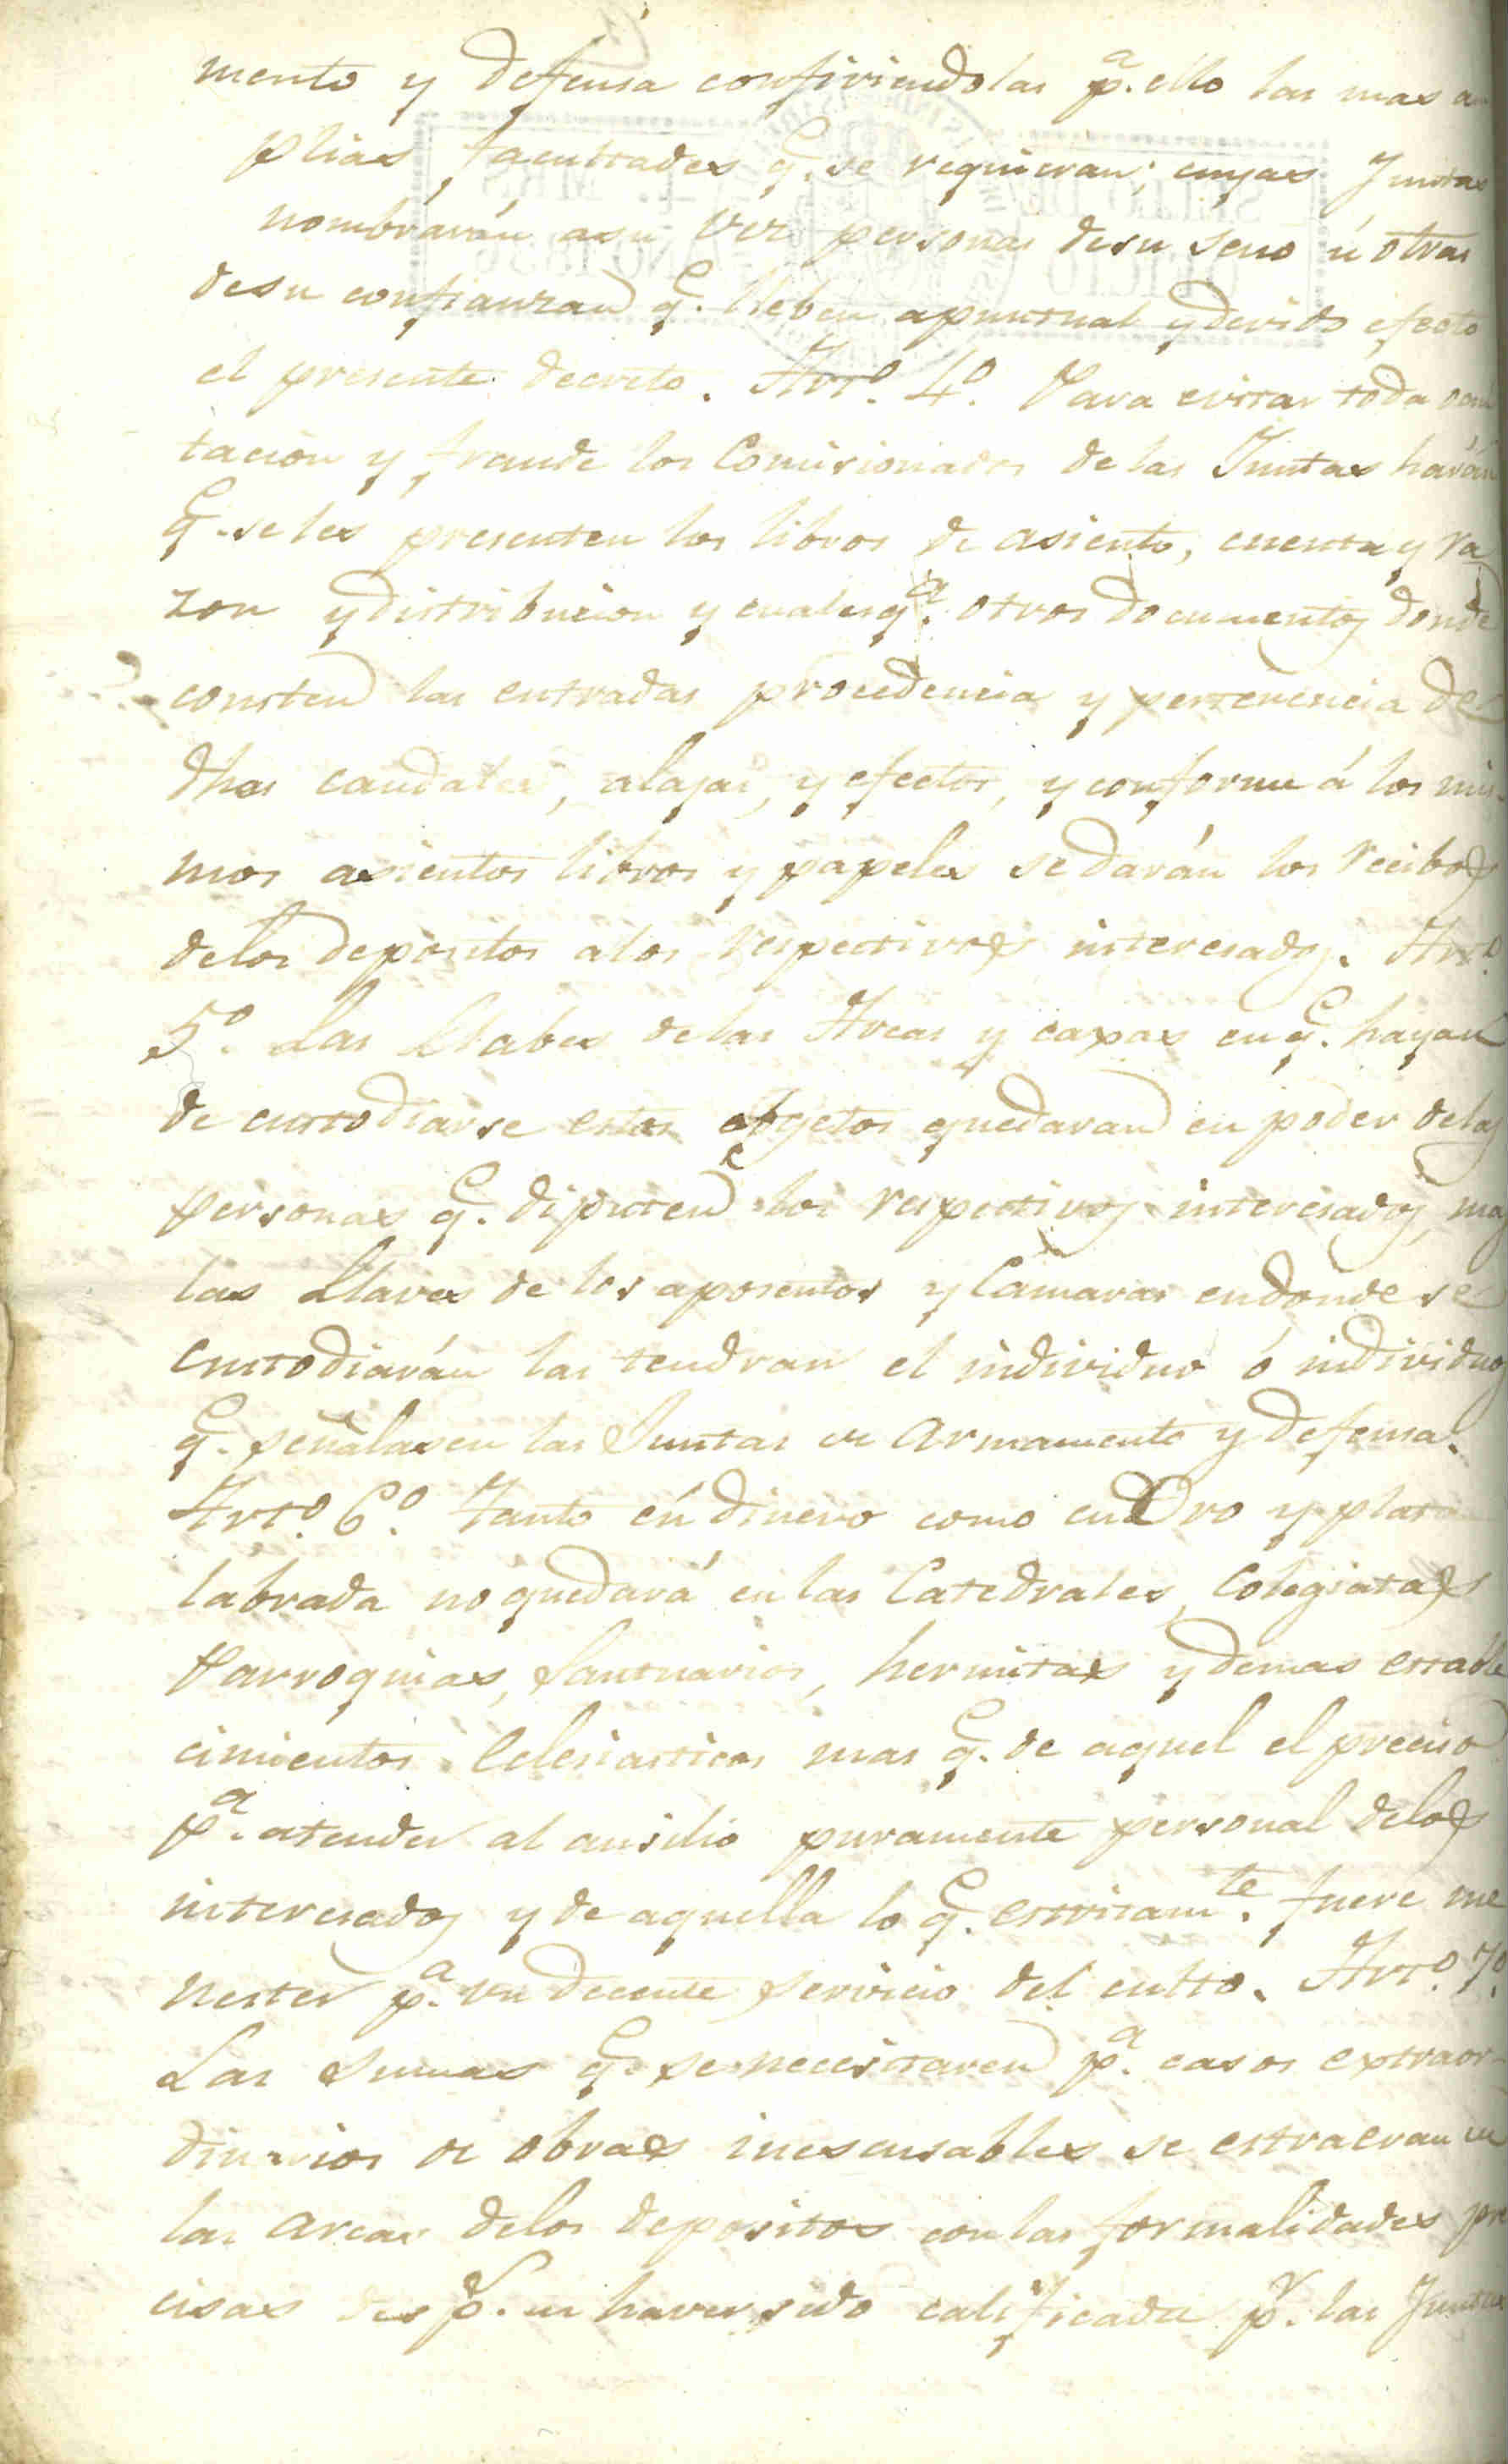 mento y defensa confiriendolas pª. ello las mas a
plias facultades q. se requieran; cuyas Juntas
nombrarán asu vez personas desu seno ú otras
desu confianza q. lleben apuntual y devido efecto
el presente decreto. Artº. 4º. Para evitar toda ocul
tacion y fraude los Comisionados de las Juntas harán
q. seles presenten los libros de asiento, cuenta y ra
zon y distribucion y cualesqª. otros documentos donde
consten las entradas procedencia y pertenencia de
dhos caudales, alajas, y efectos, y conforme á los mis-
mos asientos libros y papeles se darán los recibos
delos depositos alos respectivos interesados. Artº.
5º. Las Llabes delas Arcas y caxas en q. hayan
de custodiarse estos objetos quedaran en poder delas
personas q. diputen los respectivos interesados, mas
las Llaves de los aposentos y Camaras endonde se
custodiarán las tendran el individuo ó individuos
q. señalasen las Juntas de Armamento y defensa.
Artº. 6º. Tanto én dinero como en Oro y plata
labrada no quedará en las Catedrales, Colegiatas
Parroquias, Santuarios, hermitas y demas estable
cimientos Eclesiasticos mas q. de aquel el preciso
pª. atender al ausilio puramente personal delos
interesados y de aquella lo q. estrictamte. fuere me
nester pª. un decente servicio del culto. Artº. 7º.
Las sumas q. se necesitaren pª. casos extraor-
dinarios de obras inescusables se estraeran en
las arcas delos depositos con las formalidades pre
cisas desp. de haver sido calificada pr. las Juntas